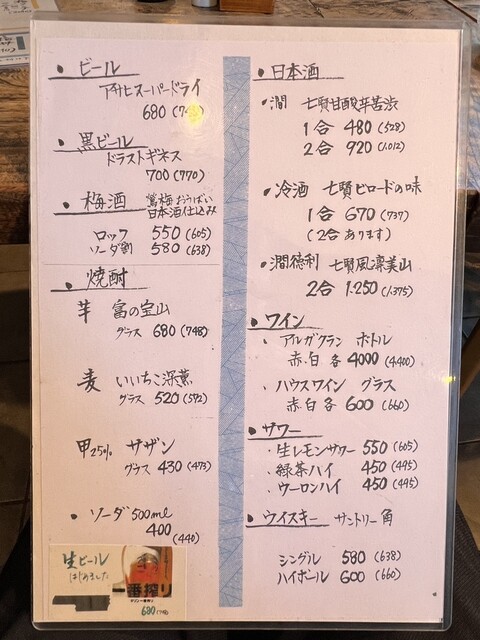 ・ビール
アサヒスーパードライ
680
・黒ビール
ドラストギネス
700 (770)
・梅酒 鶯梅 おうばい
日本酒仕込み
ロック 550 (605)
ソーダ割 580 (638)
・焼酎
芋 富の宝山
グラス 680 (748)
麦 いいちこ深薫
グラス 520 (572)
甲25% サザン
グラス 430 (473)
・ソーダ 500ml
400
(440)
生ビール
はじめました
一番搾り
680 (748)
・日本酒
・澗 七賢甘酸辛苦渋
1合 480 (528)
2合 920 (1.012)
・冷酒 七賢ビロードの味
1合 670 (737)
(2合あります)
・澗徳利 七賢風凛美山
2合 1.250 (1.375)
・ワイン
・アルガクラン ボトル
赤.白 各 4000 (4400)
・ハウスワイン グラス
赤.白 各 600 (660)
・サワー
・生レモンサワー 550 (605)
・緑茶ハイ 450 (495)
・ウーロンハイ 450 (495)
・ウイスキー サントリー角
シングル 580 (638)
ハイボール 600 (660)